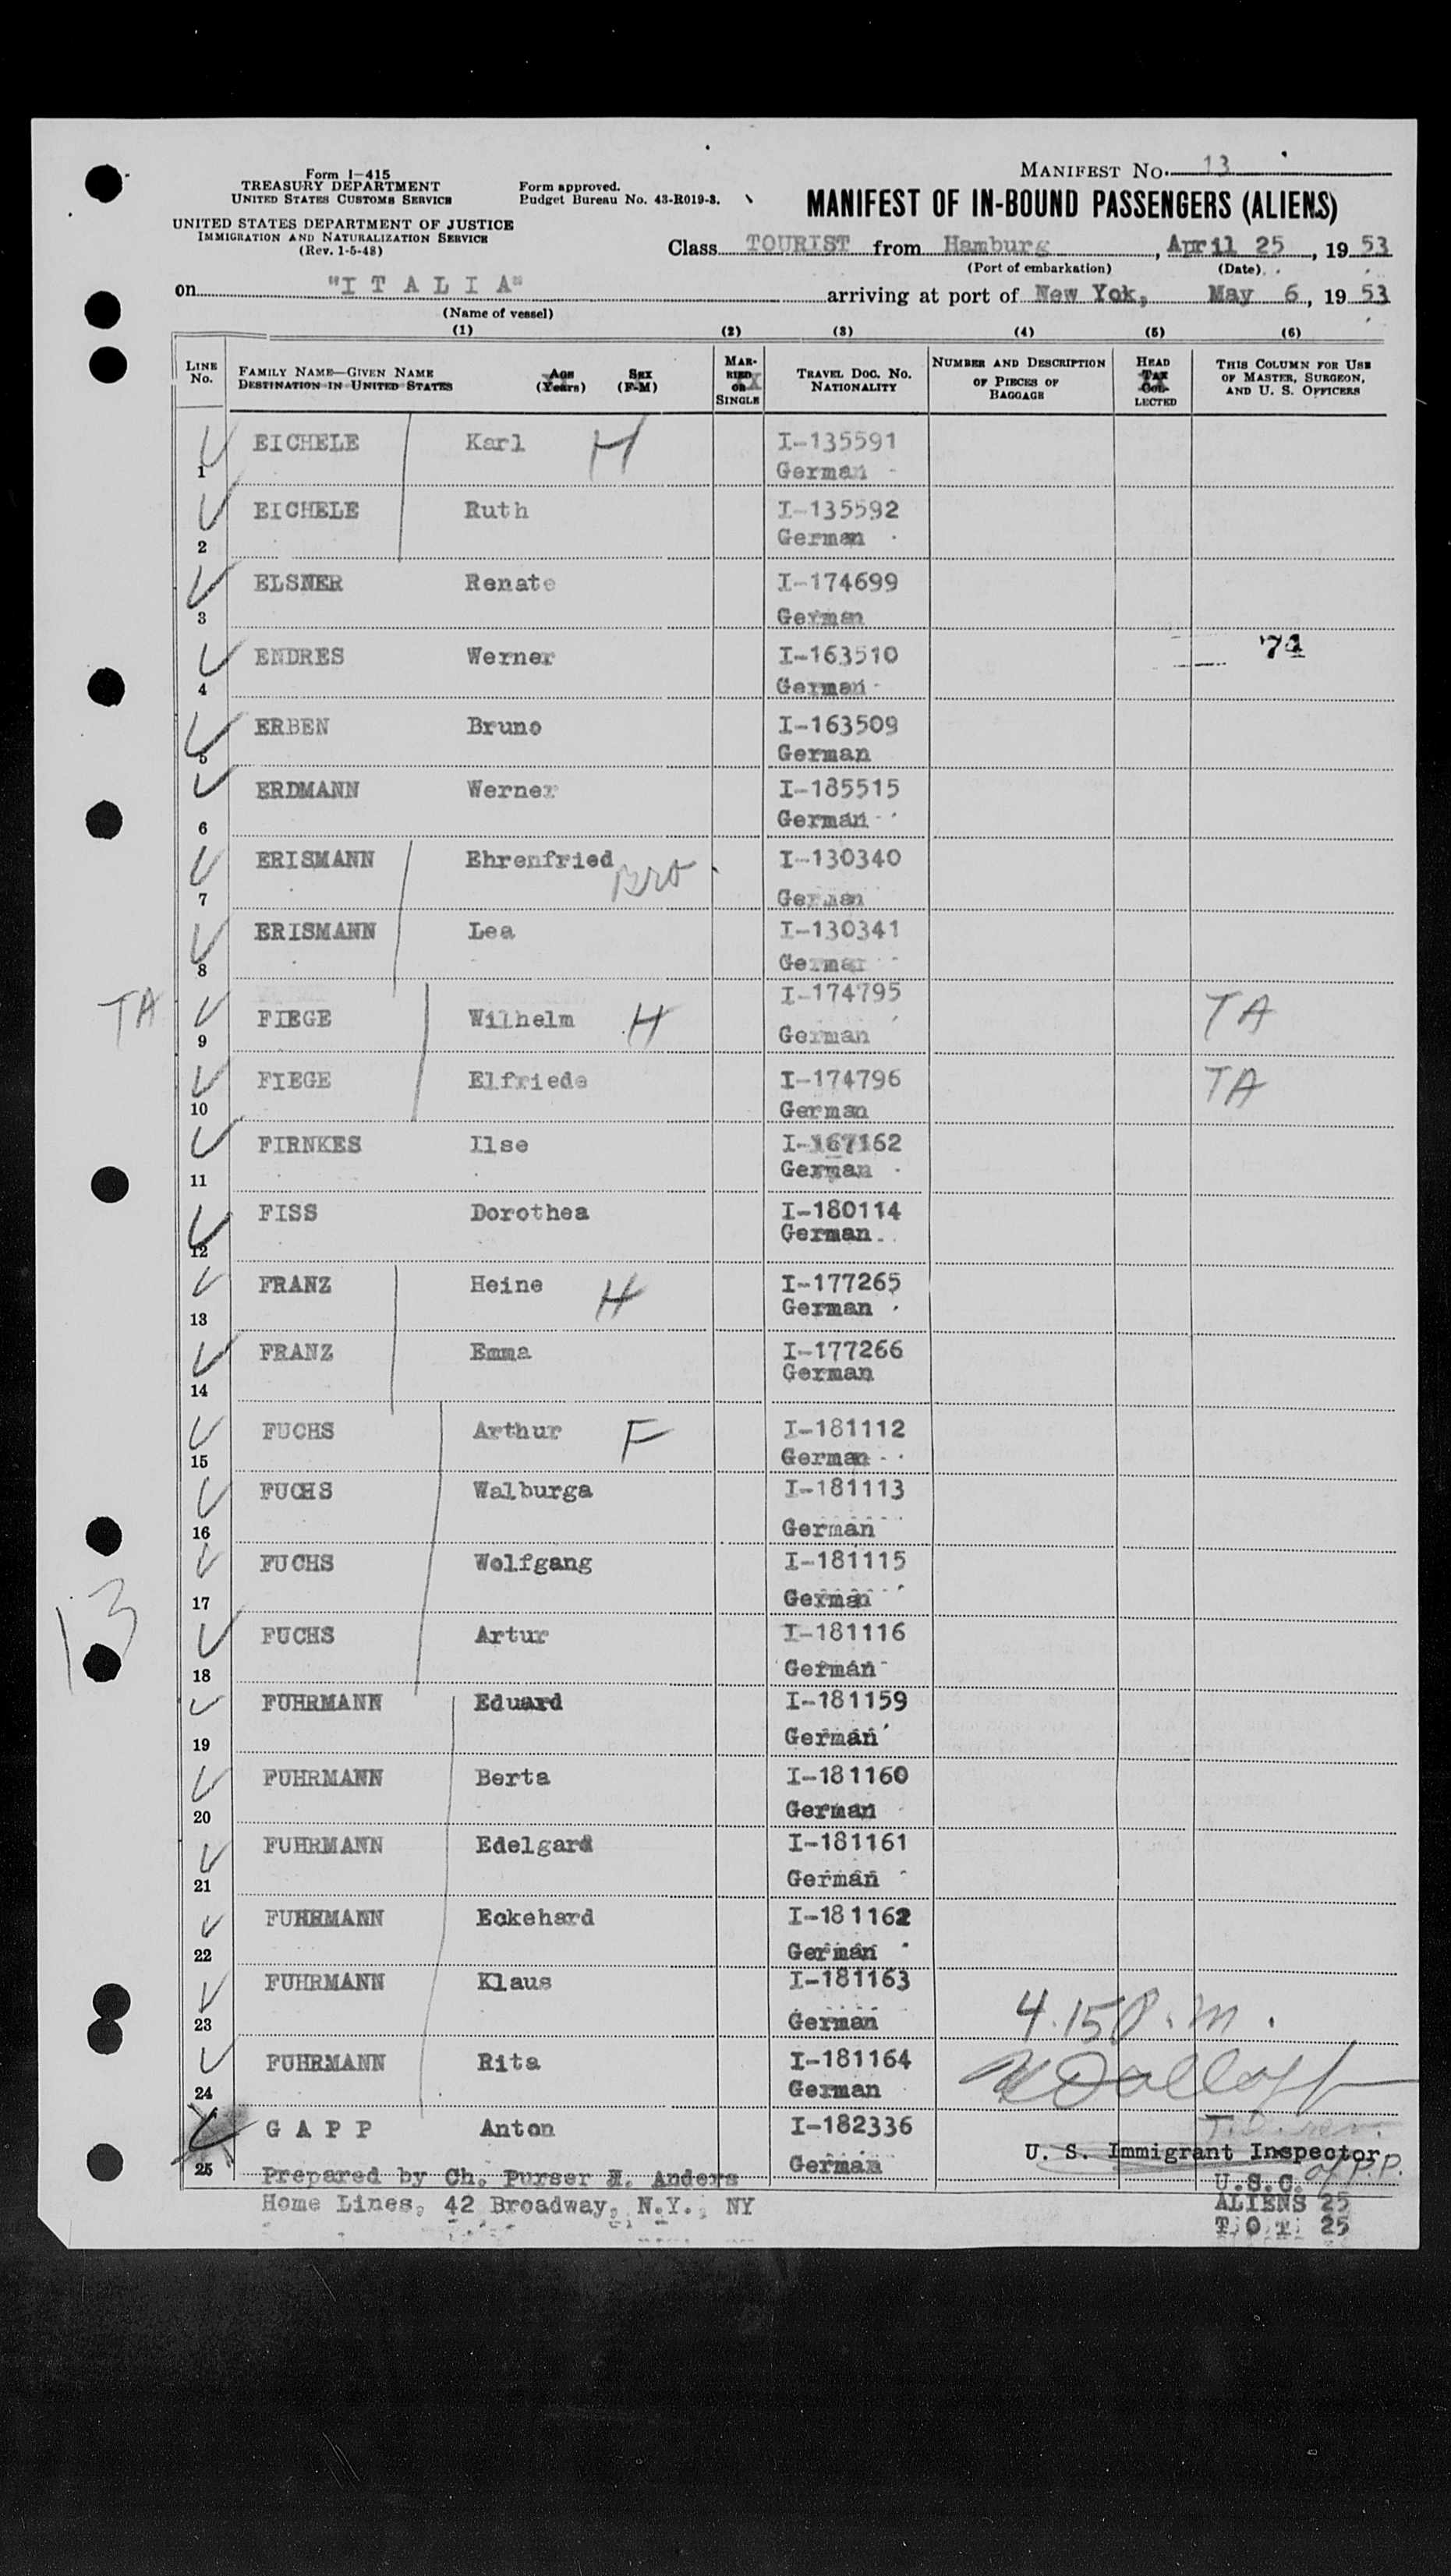 Form I-415
TREASURY DEPARTMENT
UNITED STATES CUSTOMS SERVICE
UNITED STATES DEPARTMENT OF JUSTICE
IMMIGRATION AND NATURALIZATION SERVICE
(Rev. 1-5-48)
Form approved.
Budget Bureau No. 43-R019-3.
MANIFEST NO. 13
MANIFEST OF IN-BOUND PASSENGERS (ALIENS)
Class TOURIST from Hamburg, April 25, 19 53
(Port of embarkation) (Date)
on "I T A L I A" arriving at port of New Yok, May 6, 19 53
(Name of vessel)
(1) (2) (3) (4) (5) (6)
LINE No. FAMILY NAME—GIVEN NAME DESTINATION IN UNITED STATES AGE (Years) SEX (F-M) MARRIED OR SINGLE TRAVEL DOC. NO. NATIONALITY NUMBER AND DESCRIPTION OF PIECES OF BAGGAGE HEAD TAX COLLECTED THIS COLUMN FOR USE OF MASTER, SURGEON, AND U. S. OFFICERS
1 EICHELE Karl H I-135591
German
2 EICHELE Ruth I-135592
German
3 ELSNER Renate I-174699
German
4 ENDRES Werner I-163510 74
German
5 ERBEN Bruno I-163509
German
6 ERDMANN Werner I-185515
German
7 ERISMANN Ehrenfried Bro I-130340
German
8 ERISMANN Lea I-130341
German
TA 9 FIEGE Wilhelm H I-174795 TA
German
10 FIEGE Elfriede I-174796 TA
German
11 FIRNKES Ilse I-167162
German
12 FISS Dorothea I-180114
German
13 FRANZ Heine H I-177265
German
14 FRANZ Emma I-177266
German
15 FUCHS Arthur F I-181112
German
16 FUCHS Walburga I-181113
German
17 FUCHS Wolfgang I-181115
German
13
18 FUCHS Artur I-181116
German
19 FUHRMANN Eduard I-181159
German
20 FUHRMANN Berta I-181160
German
21 FUHRMANN Edelgard I-181161
German
22 FUHRMANN Eckehard I-181162
German
23 FUHRMANN Klaus I-181163
German 4.15 P.m.
24 FUHRMANN Rita I-181164
German
25 G A P P Anton I-182336
German
U. S. Immigrant Inspector
Prepared by Ch. Purser H. Anders
Home Lines, 42 Broadway, N.Y., NY
U.S.C.
ALIENS 25
T O T 25